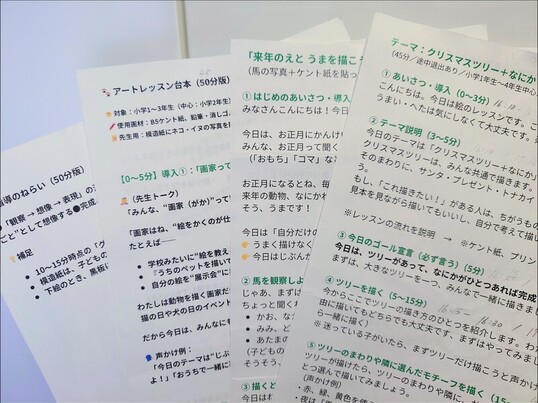 指導のねらい（50分版）
●「観察 → 想像 → 表現」の
ごと"として想像する●完成
補足
• 10〜15分時点の「
• 模造紙は、子どもの
• 下絵のとき、黒板
アートレッスン台本（50分版）
対象：小学1〜3年生（中心：小学2年生
使用画材：B5ケント紙、鉛筆・消しゴ
先生用：模造紙にネコ・イヌの写真を
【0〜5分】導入①：「画家って
（先生トーク）
「みんな、“画家（がか）”って
「画家はね、“絵をかくのが仕
たとえば――
• 学校みたいに“絵を教え
• “うちのペットを描いて
• 自分の絵を“展示会”に
わたしは動物を描く画家だ
猫の日や犬の日のイベント
だから今日は、みんなに
声かけ例：
「今日のテーマは“じぶ
よ！」「おうちで一緒に
「来年のえと うまを描こ
（馬の写真＋ケント紙を貼っ
① はじめのあいさつ・導入
みなさんこんにちは！今日
今日は、お正月にかんけ
みんな、お正月ってなに
（「おもち」「コマ」な
お正月になるとね、毎
来年の動物、なにか
そう、うまです！
今日は「自分だけの
うまく描けなく
今日はじぶんが
② 馬を観察しよ
じゃあ、まずは
ちょっと聞く
• かお、な
• みみ、ど
• あたまの
（子どもの
そうそう、
③ 描くと
今日は
テーマ：クリスマスツリー＋なにか
（45分／途中退出あり／小学1年生〜4年生中心
① あいさつ・導入（0〜3分）
こんにちは。今日は絵のレッスンです。こ
うまい・へたは気にしなくて大丈夫です。
② テーマ説明（3〜5分）
今日のテーマは「クリスマスツリー＋なにか」
クリスマスツリーは、みんな共通で描きます。
そのまわりに、サンタ・プレゼント・トナカイ
もし、「これ描きたい！」がある人は、ちがうもの
見本を見ながら描いてもいいし、自分で考えて描い
※レッスンの流れを説明 → ※ケント紙、プリン
③ 今日のゴール宣言（必ず言う）（5分）
今日は、ツリーがあって、なにかがひとつあれば完成
まずは、大きなツリーを一つ、みんなで一緒に描きまし
④ ツリーを描く（5〜15分）
今からここでツリーの描き方のひとつを紹介します。わた
由に描いてもどちらでも大丈夫です。まずはやってみまし
ら一緒に描く）
※ 迷っている子がいたら、まずツリーだけ描こうと声かけ
⑤ ツリーのまわりや隣に選んだモチーフを描く（15〜
ツリーが描けたら、ツリーのまわりに、
とつ選んで描いてみましょう。
（声かけ例）
• 赤、緑、黄色を使
• 夜は